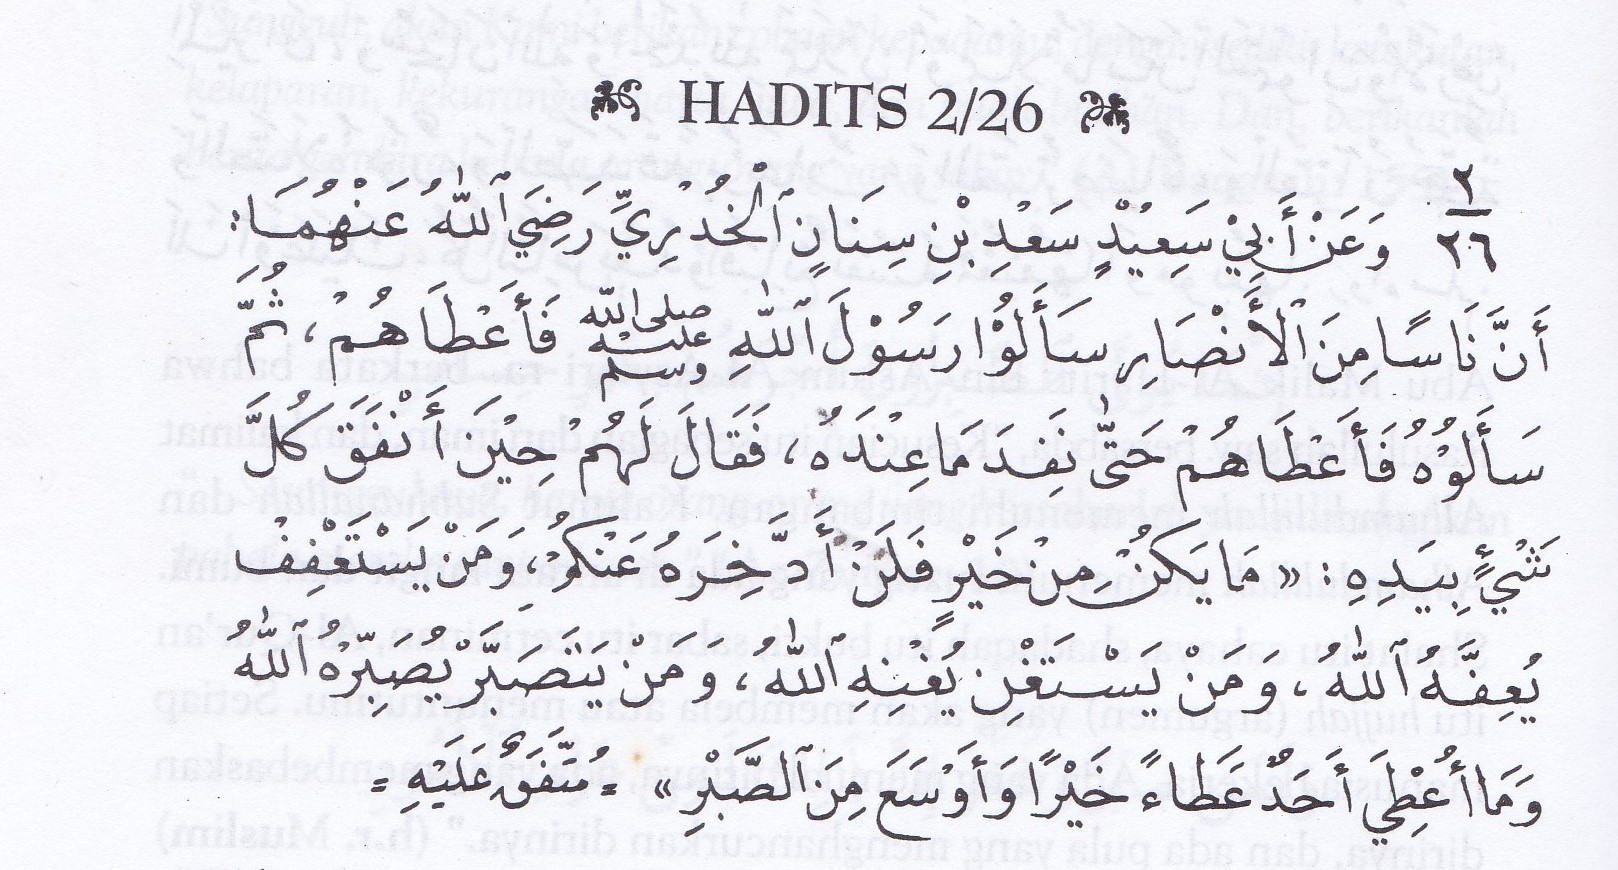 HADITS 2/26
٢
٢٦
وَعَنْ أَبِيْ سَعِيْدٍ سَعْدِ بْنِ سِنَانٍ ٱلْخُدْرِيِّ رَضِيَ ٱللّٰهُ عَنْهُمَا:
أَنَّ نَاسًا مِنَ ٱلْأَنْصَارِ سَأَلُوْا رَسُوْلَ ٱللّٰهِ صلى الله عليه وسلم فَأَعْطَاهُمْ، ثُمَّ
سَأَلُوْهُ فَأَعْطَاهُمْ حَتّٰى نَفِدَ مَا عِنْدَهُ، فَقَالَ لَهُمْ حِيْنَ أَنْفَقَ كُلَّ
شَيْءٍ بِيَدِهِ: « مَا يَكُنْ مِنْ خَيْرٍ فَلَنْ أَدَّخِرَهُ عَنْكُمْ، وَمَنْ يَسْتَعْفِفْ
يُعِفَّهُ ٱللّٰهُ، وَمَنْ يَسْتَغْنِ يُغْنِهِ ٱللّٰهُ، وَمَنْ يَتَصَبَّرْ يُصَبِّرْهُ ٱللّٰهُ
وَمَا أُعْطِيَ أَحَدٌ عَطَاءً خَيْرًا وَأَوْسَعَ مِنَ ٱلصَّبْرِ » = مُتَّفَقٌ عَلَيْهِ =